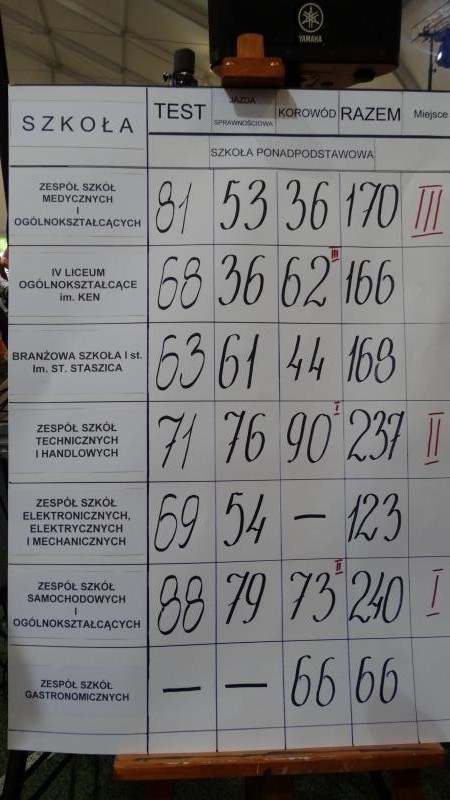 YAMAHA
SZKOŁA TEST JAZDA SPRAWNOŚCIOWA KOROWÓD RAZEM Miejsce
SZKOŁA PONADPODSTAWOWA
ZESPÓŁ SZKÓŁ
MEDYCZNYCH
I
OGÓLNOKSZTAŁCĄCYCH
81 53 36 170 III
IV LICEUM
OGÓLNOKSZTAŁCĄCE
im. KEN
68 36 62 III 166
BRANŻOWA SZKOŁA I st.
Im. ST. STASZICA
63 61 44 168
ZESPÓŁ SZKÓŁ
TECHNICZNYCH
I HANDLOWYCH
71 76 90 I 237 II
ZESPÓŁ SZKÓŁ
ELEKTRONICZNYCH,
ELEKTRYCZNYCH
I MECHANICZNYCH
69 54 — 123
ZESPÓŁ SZKÓŁ
SAMOCHODOWYCH
I
OGÓLNOKSZTAŁCĄCYCH
88 79 73 II 240 I
ZESPÓŁ SZKÓŁ
GASTRONOMICZNYCH
— — 66 66